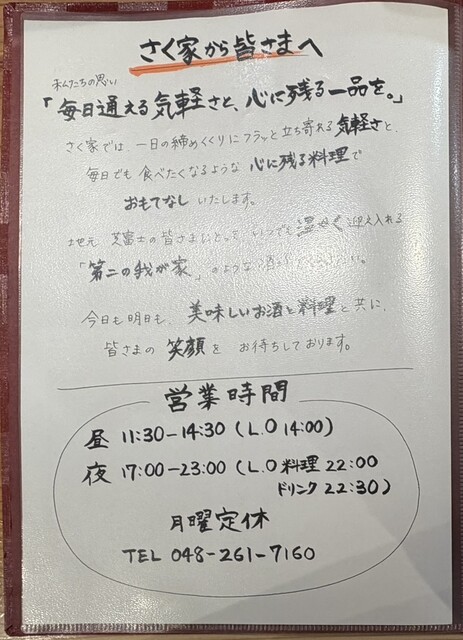 さく家から皆さまへ
私たちの思い
「毎日通える気軽さと、心に残る一品を。」
さく家では、一日の締めくくりにフラッと立ち寄れる気軽さと、
毎日でも食べたくなるような心に残る料理で
おもてなしいたします。
地元 芝富士の皆さまにとって、いつでも温かく迎え入れる
「第二の我が家」のような酒
今日も明日も、美味しいお酒と料理と共に、
皆さまの笑顔をお待ちしております。
営業時間
昼 11:30-14:30 (L.O 14:00)
夜 17:00-23:00 (L.O 料理 22:00
ドリンク 22:30)
月曜定休
TEL 048-261-7160